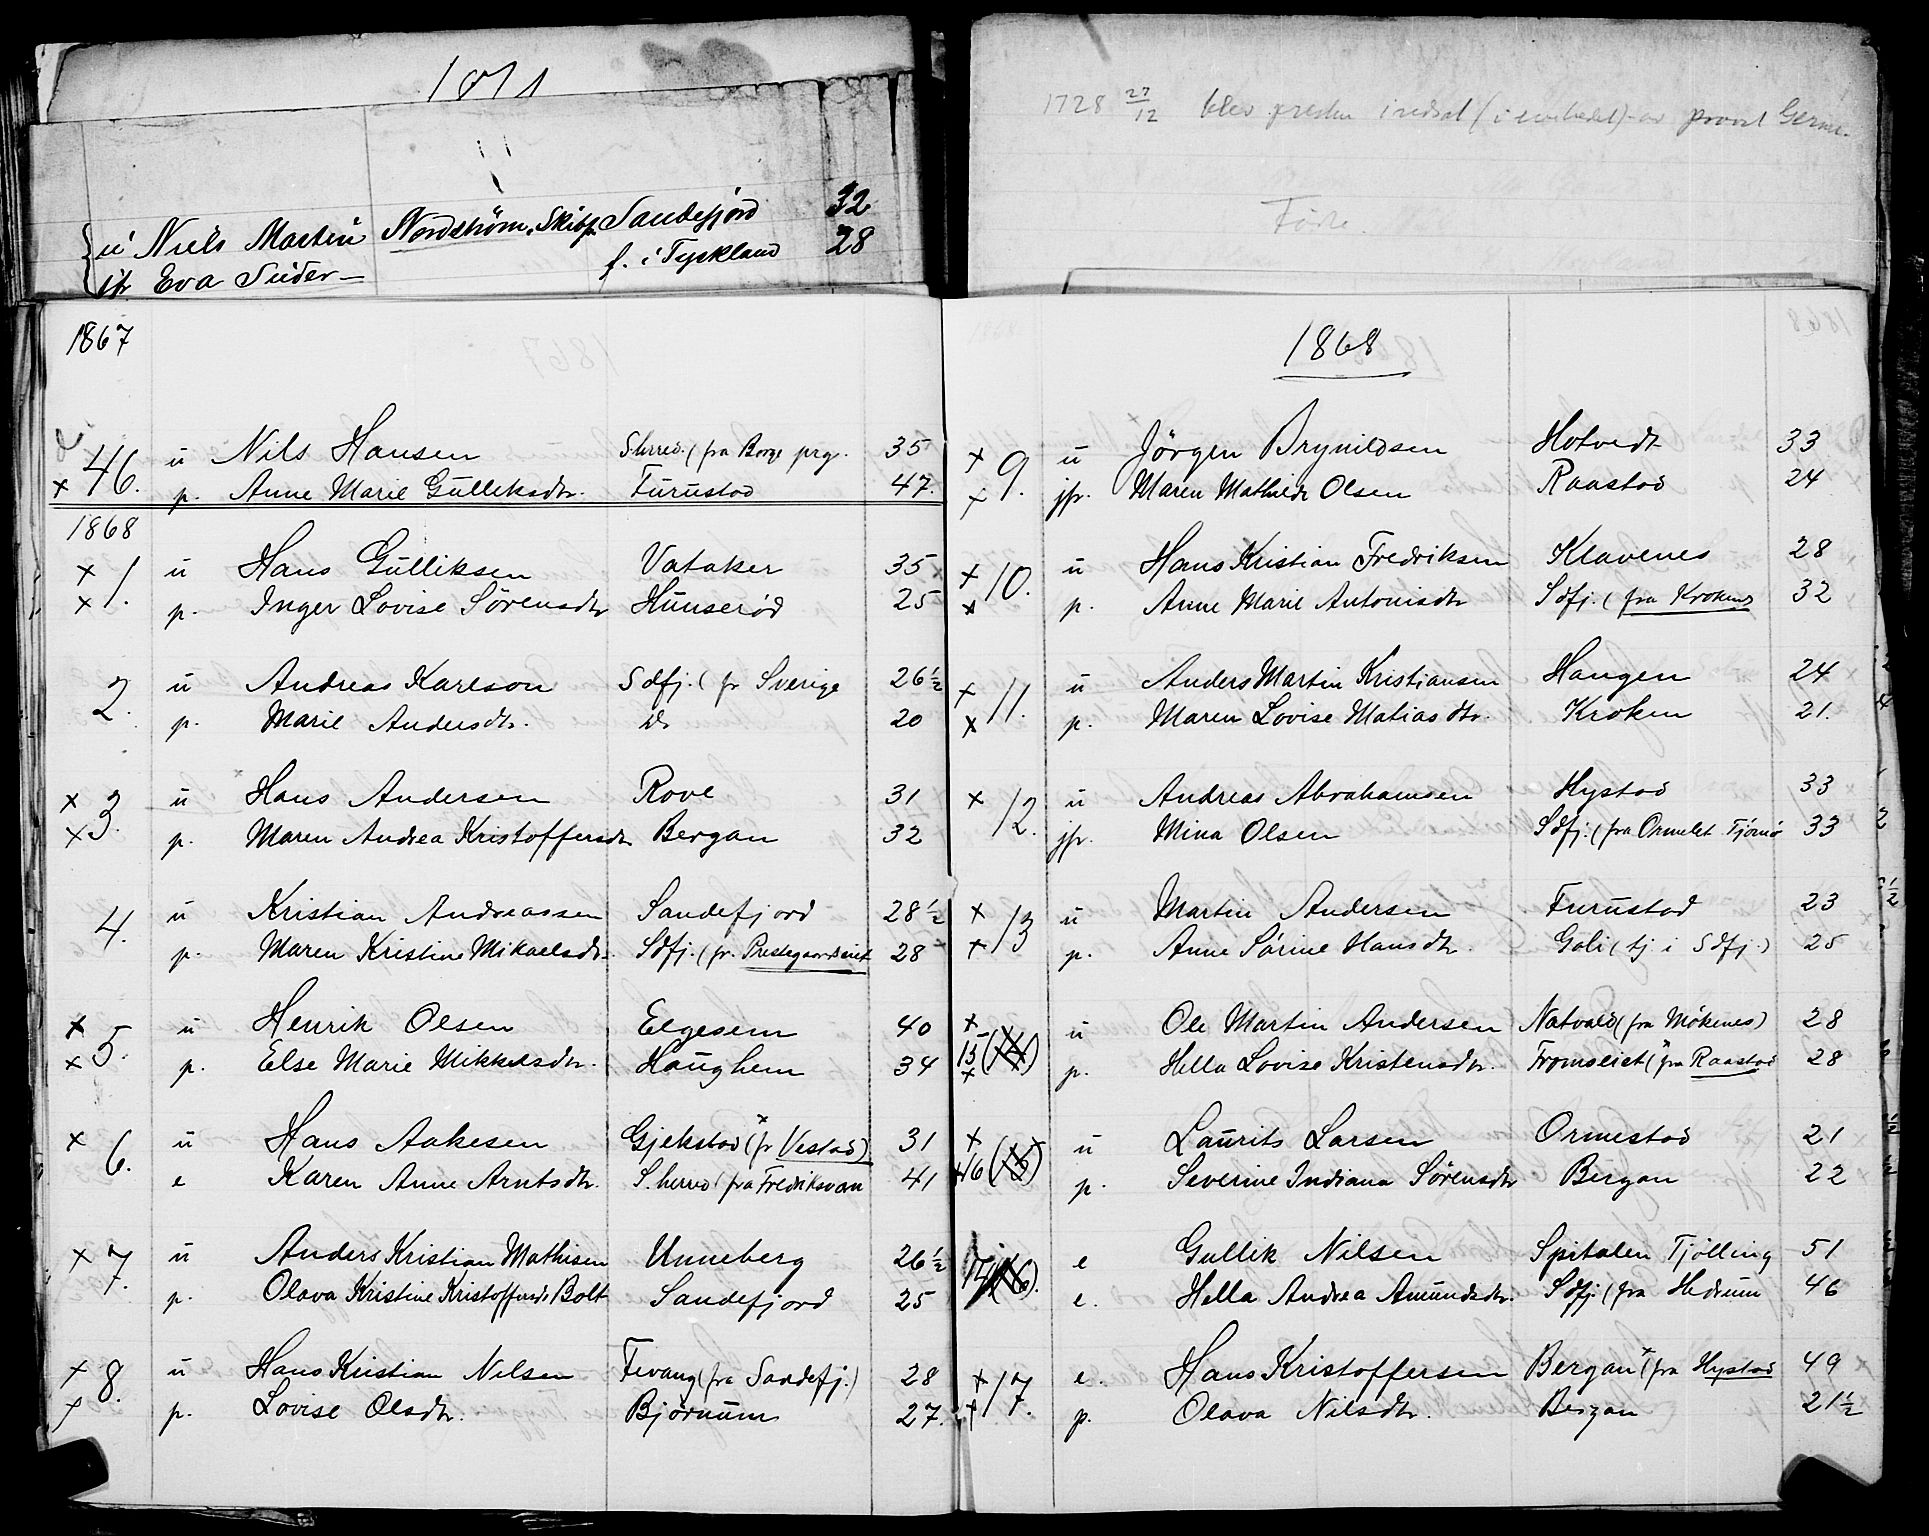 1871
u Niels Martin Nordstrøm, Skibsf. Sandefjord 32
jfr Eva Suder— f. i Tyskland 28
1867
46. u Nils Hansen S.herred. (fra Borge prg. 35
x p. Anne Marie Gulliksdtr. Furustad 47.
1868
x 1. u Hans Gulliksen Vataker 35
x p. Inger Lovise Sörensdtr Hunserød 25
2. u Andreas Karlson Sdfj. (fr Sverige 26½
p. Marie Andersdtr. id 20
x 3. u Hans Andersen Rove 31
x p. Maren Andrea Kristoffersdtr Bergan 32
4. u Kristian Andreassen Sandefjord 28½
p. Maren Kristine Mikaelsdtr. Sdfj. (fr. Prestegaardseiet 28
x 5. u Henrik Olsen Elgesem 40
x p. Else Marie Mikkelsdtr. Haughem 34
x 6. u Hans Aakesen Gjekstad (fr Vestad) 31
e Karen Anne Arntsdtr. S.herred (fra Fredriksværn 41
x 7. u Anders Kristian Mathisen Unneberg 26½
p. Olava Kristine Kristoffersdtr Bolt Sandefjord 25
x 8. u Hans Kristian Nilsen Fevang (fra Sandefj.) 28
x p. Lovise Olsdtr. Bjørnum 27.
1728 27/12 blev presten indsat (i embedet) av provst
Födte.
1868
x 9. u Jörgen Brynildsen Hotvedt 33
x jfr. Maren Mathilde Olsen Raastad 24
x 10. u Hans Kristian Fredriksen Klavenes 28
x p. Anne Marie Antonisdtr Sdfj. (fra Kroken) 32
x 11. u Anders Martin Kristiansen Haugen 24
x p. Maren Lovise Matiasdtr. Kroken 21.
x 12. u Andreas Abrahamsen Hystad 33
jfr. Mina Olsen Sdfj. (fra Ormelet Tjømø 33
x 13 u Martin Andersen Furustad 23
x p. Anne Sörine Hansdtr. Goli (tj i Sdfj.) 25
x 15 (14) u Ole Martin Andersen Natvald (fra Mökenes) 28
x p. Hella Lovise Kristensdtr. Fromseiet (fra Raastad 28
x 16 (15) u Laurits Larsen Ormestad 21
x p. Severine Indiana Sørensdtr Bergan 22
14 (16). e Gullik Nilsen Spitalen Tjølling 51
e. Hella Andrea Amundsdtr. Sdfj. (fra Hedrum 46
x 17. e. Hans Kristoffersen Bergan (fra Hystad 49
x p. Olava Nilsdtr. Bergan 21½